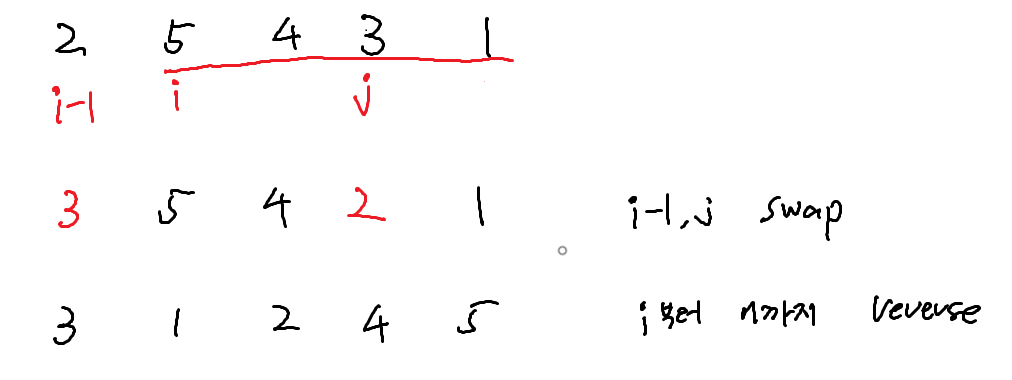 2 5 4 3 1
i-1 i j
3 5 4 2 1 i-1, j swap
3 1 2 4 5 i부터 n까지 reverse